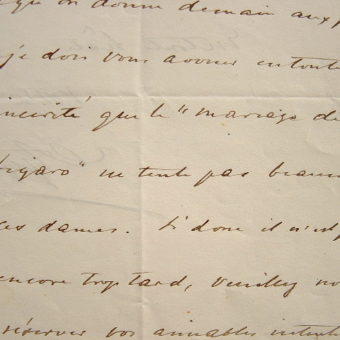 que on donne demain aux
je dois vous avouer en toute
que le "mariage de
" ne tente pas beau
ces dames. Si donc il n'est
encore trop tard, veuillez
réserver vos aimables